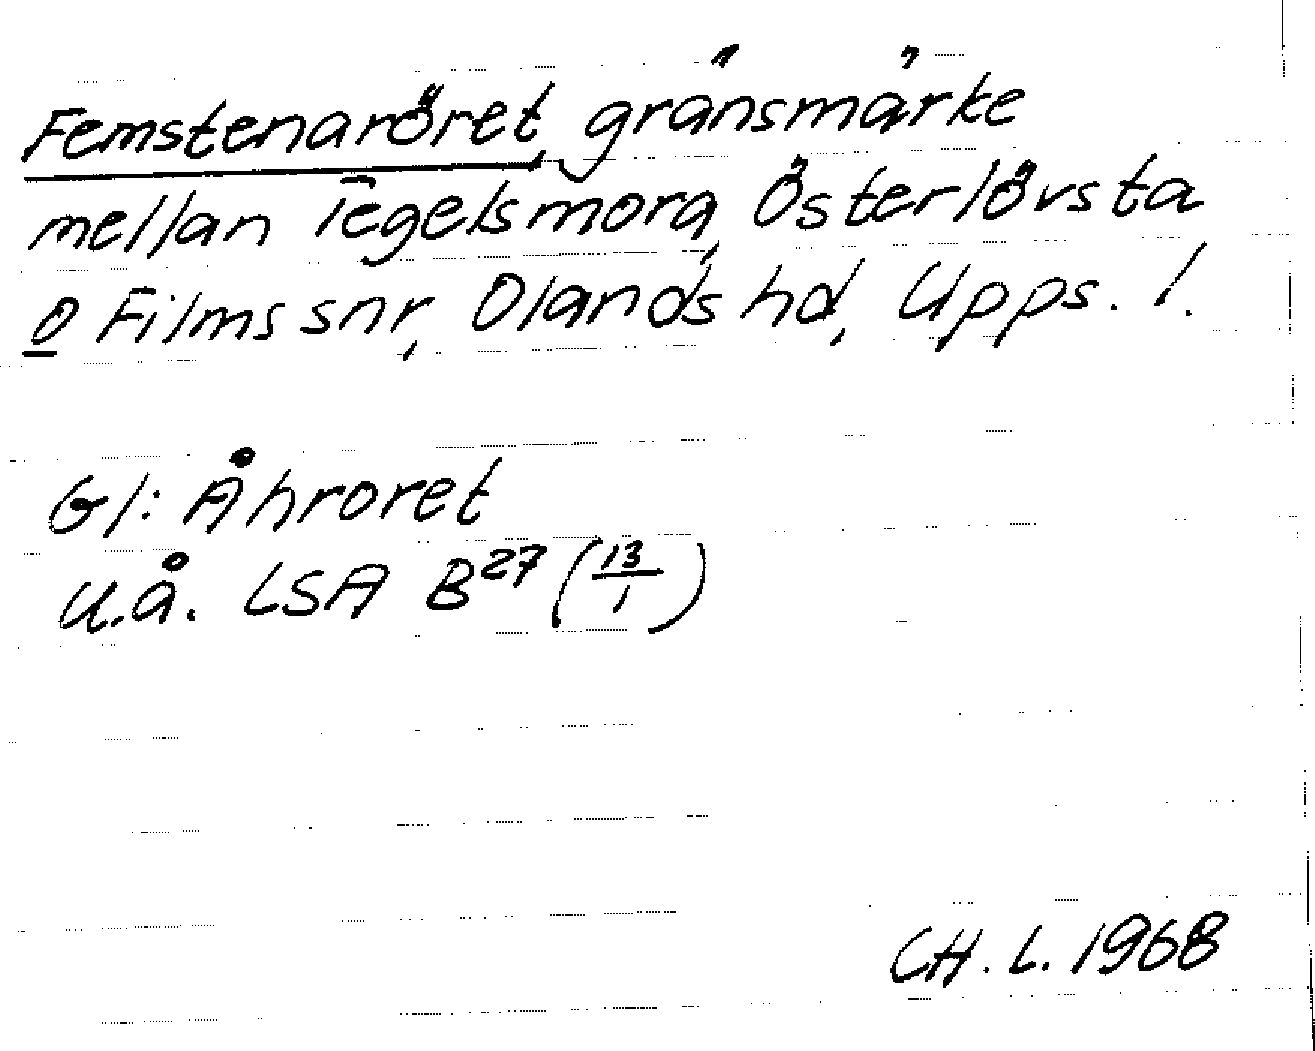 Femstenaröret, gränsmärke
mellan Tegelsmora, Österlövsta
o Films snr, Olands hd, Upps. l.
Gl: Åhroret
u.å. LSA B27 (13/1)
CH. L. 1968